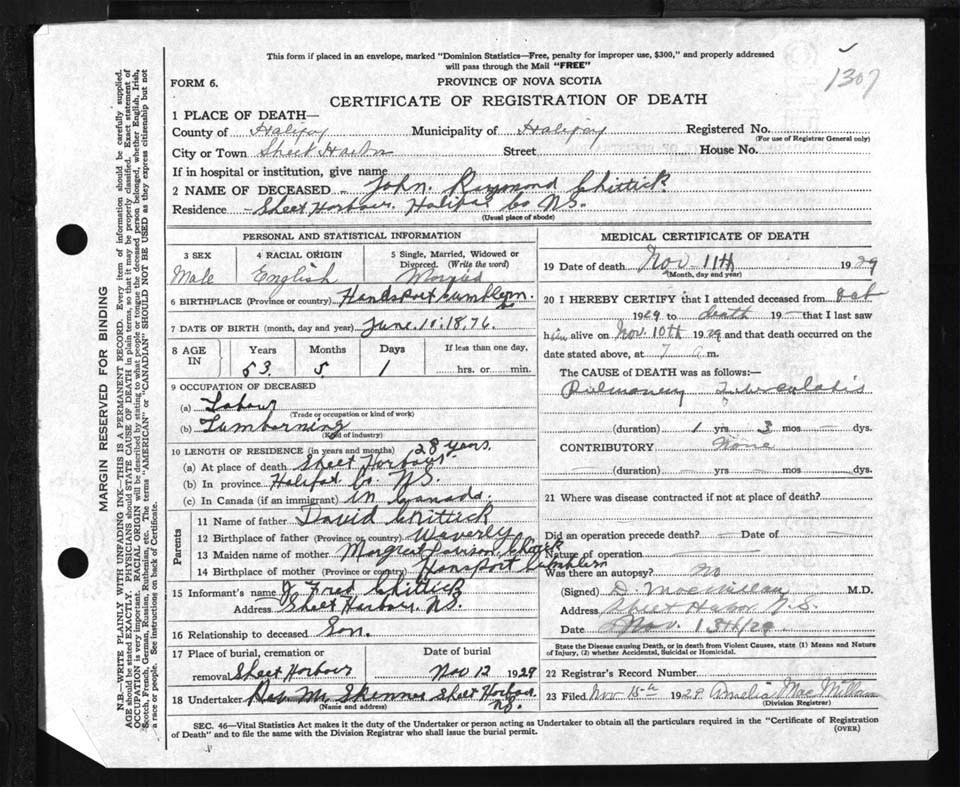 This form if placed in an envelope, marked "Dominion Statistics—Free, penalty for improper use, $300," and properly addressed
will pass through the Mail "FREE"
1307
FORM 6.
PROVINCE OF NOVA SCOTIA
CERTIFICATE OF REGISTRATION OF DEATH
1 PLACE OF DEATH—
County of Halifax Municipality of Halifax Registered No.
(For use of Registrar General only)
City or Town Sheet Harbor Street House No.
If in hospital or institution, give name
2 NAME OF DECEASED - John. Raymond Chittick
Residence - Sheet Harbour. Halifax Co NS.
(Usual place of abode)
PERSONAL AND STATISTICAL INFORMATION
3 SEX
4 RACIAL ORIGIN
5 Single, Married, Widowed or
Divorced. (Write the word)
Male English
6 BIRTHPLACE (Province or country)
7 DATE OF BIRTH (month, day and year) June. 10. 1876.
8 AGE
IN
Years Months Days If less than one day,
53. 5 1 hrs. or min.
9 OCCUPATION OF DECEASED
(a) Labour
(Trade or occupation or kind of work)
(b) Lumberning
(Kind of industry)
10 LENGTH OF RESIDENCE (in years and months) 28 years.
(a) At place of death Sheet Harbour
(b) In province Halifax Co. N.S.
(c) In Canada (if an immigrant) in Canada.
Parents
11 Name of father David Chittick
12 Birthplace of father (Province or country) Waverly
13 Maiden name of mother Margret
14 Birthplace of mother (Province or country)
15 Informant's name J Fred Chittick
Address Sheet Harbour. N.S.
16 Relationship to deceased Son.
17 Place of burial, cremation or
removal Sheet Harbour
Date of burial
Nov 12 1929
18 Undertaker Skinner Sheet Harbour
(Name and address) N.S.
MEDICAL CERTIFICATE OF DEATH
19 Date of death Nov 11th 1929
(Month, day and year)
20 I HEREBY CERTIFY that I attended deceased from Oct
1929 to death 19— that I last saw
him alive on Nov. 10th 1929 and that death occurred on
date stated above, at 7 a m.
The CAUSE of DEATH was as follows:—
Pulmonary Tuberculosis
(duration) 1 yrs 3 mos — dys.
CONTRIBUTORY None
(duration) — yrs — mos — dys.
21 Where was disease contracted if not at place of death?
Did an operation precede death? — Date of —
Nature of operation —
Was there an autopsy? no
(Signed) D. MacMillan M.D.
Address Sheet Harbor N.S.
Date Nov. 13th/29
State the Disease causing Death, or in death from Violent Causes, state (1) Means and Nature
of Injury, (2) whether Accidental, Suicidal or Homicidal.
22 Registrar's Record Number
23 Filed Nov 15th 1929 Amelia MacMillan
(Division Registrar)
SEC. 46—Vital Statistics Act makes it the duty of the Undertaker or person acting as Undertaker to obtain all the particulars required in the "Certificate of Registration
of Death" and to file the same with the Division Registrar who shall issue the burial permit.
(OVER)
MARGIN RESERVED FOR BINDING
N.B.—WRITE PLAINLY WITH UNFADING INK—THIS IS A PERMANENT RECORD. Every item of information should be carefully supplied.
AGE should be stated EXACTLY. PHYSICIANS should STATE CAUSE OF DEATH in plain terms, so that it may be properly classified. Exact statement of
OCCUPATION is very important. RACIAL ORIGIN will be described by stating to what people or tongue the deceased person belonged, whether English, Irish,
Scotch, French, German, Russian, Ruthenian, etc. The terms "AMERICAN" or "CANADIAN" SHOULD NOT BE USED as they express citizenship but not
a race or people. See instructions on back of Certificate.